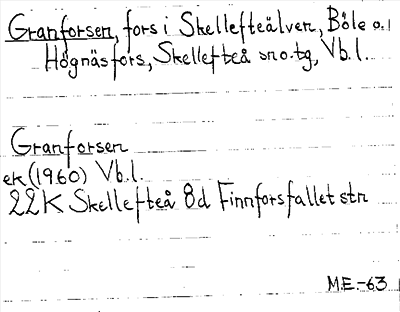 Granforsen, fors i Skellefteälven, Böle o.
Högnäsfors, Skellefteå sn o. tg, Vb.l.
Granforsen
ek (1960) Vb.l.
22K Skellefteå 8d Finnforsfallet str
M.E.-63